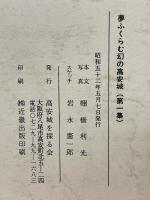 夢ふくらむ幻の高安城(第一集)
昭和五十二年五月七日発行
本文 写真 棚橋利光
スケッチ 岩永憲一郎
発行 高安城を探る会
大阪府八尾市高安町北五ー四
電話〇七二九ー九一ー六八三
印刷 ㈱近畿出版印刷